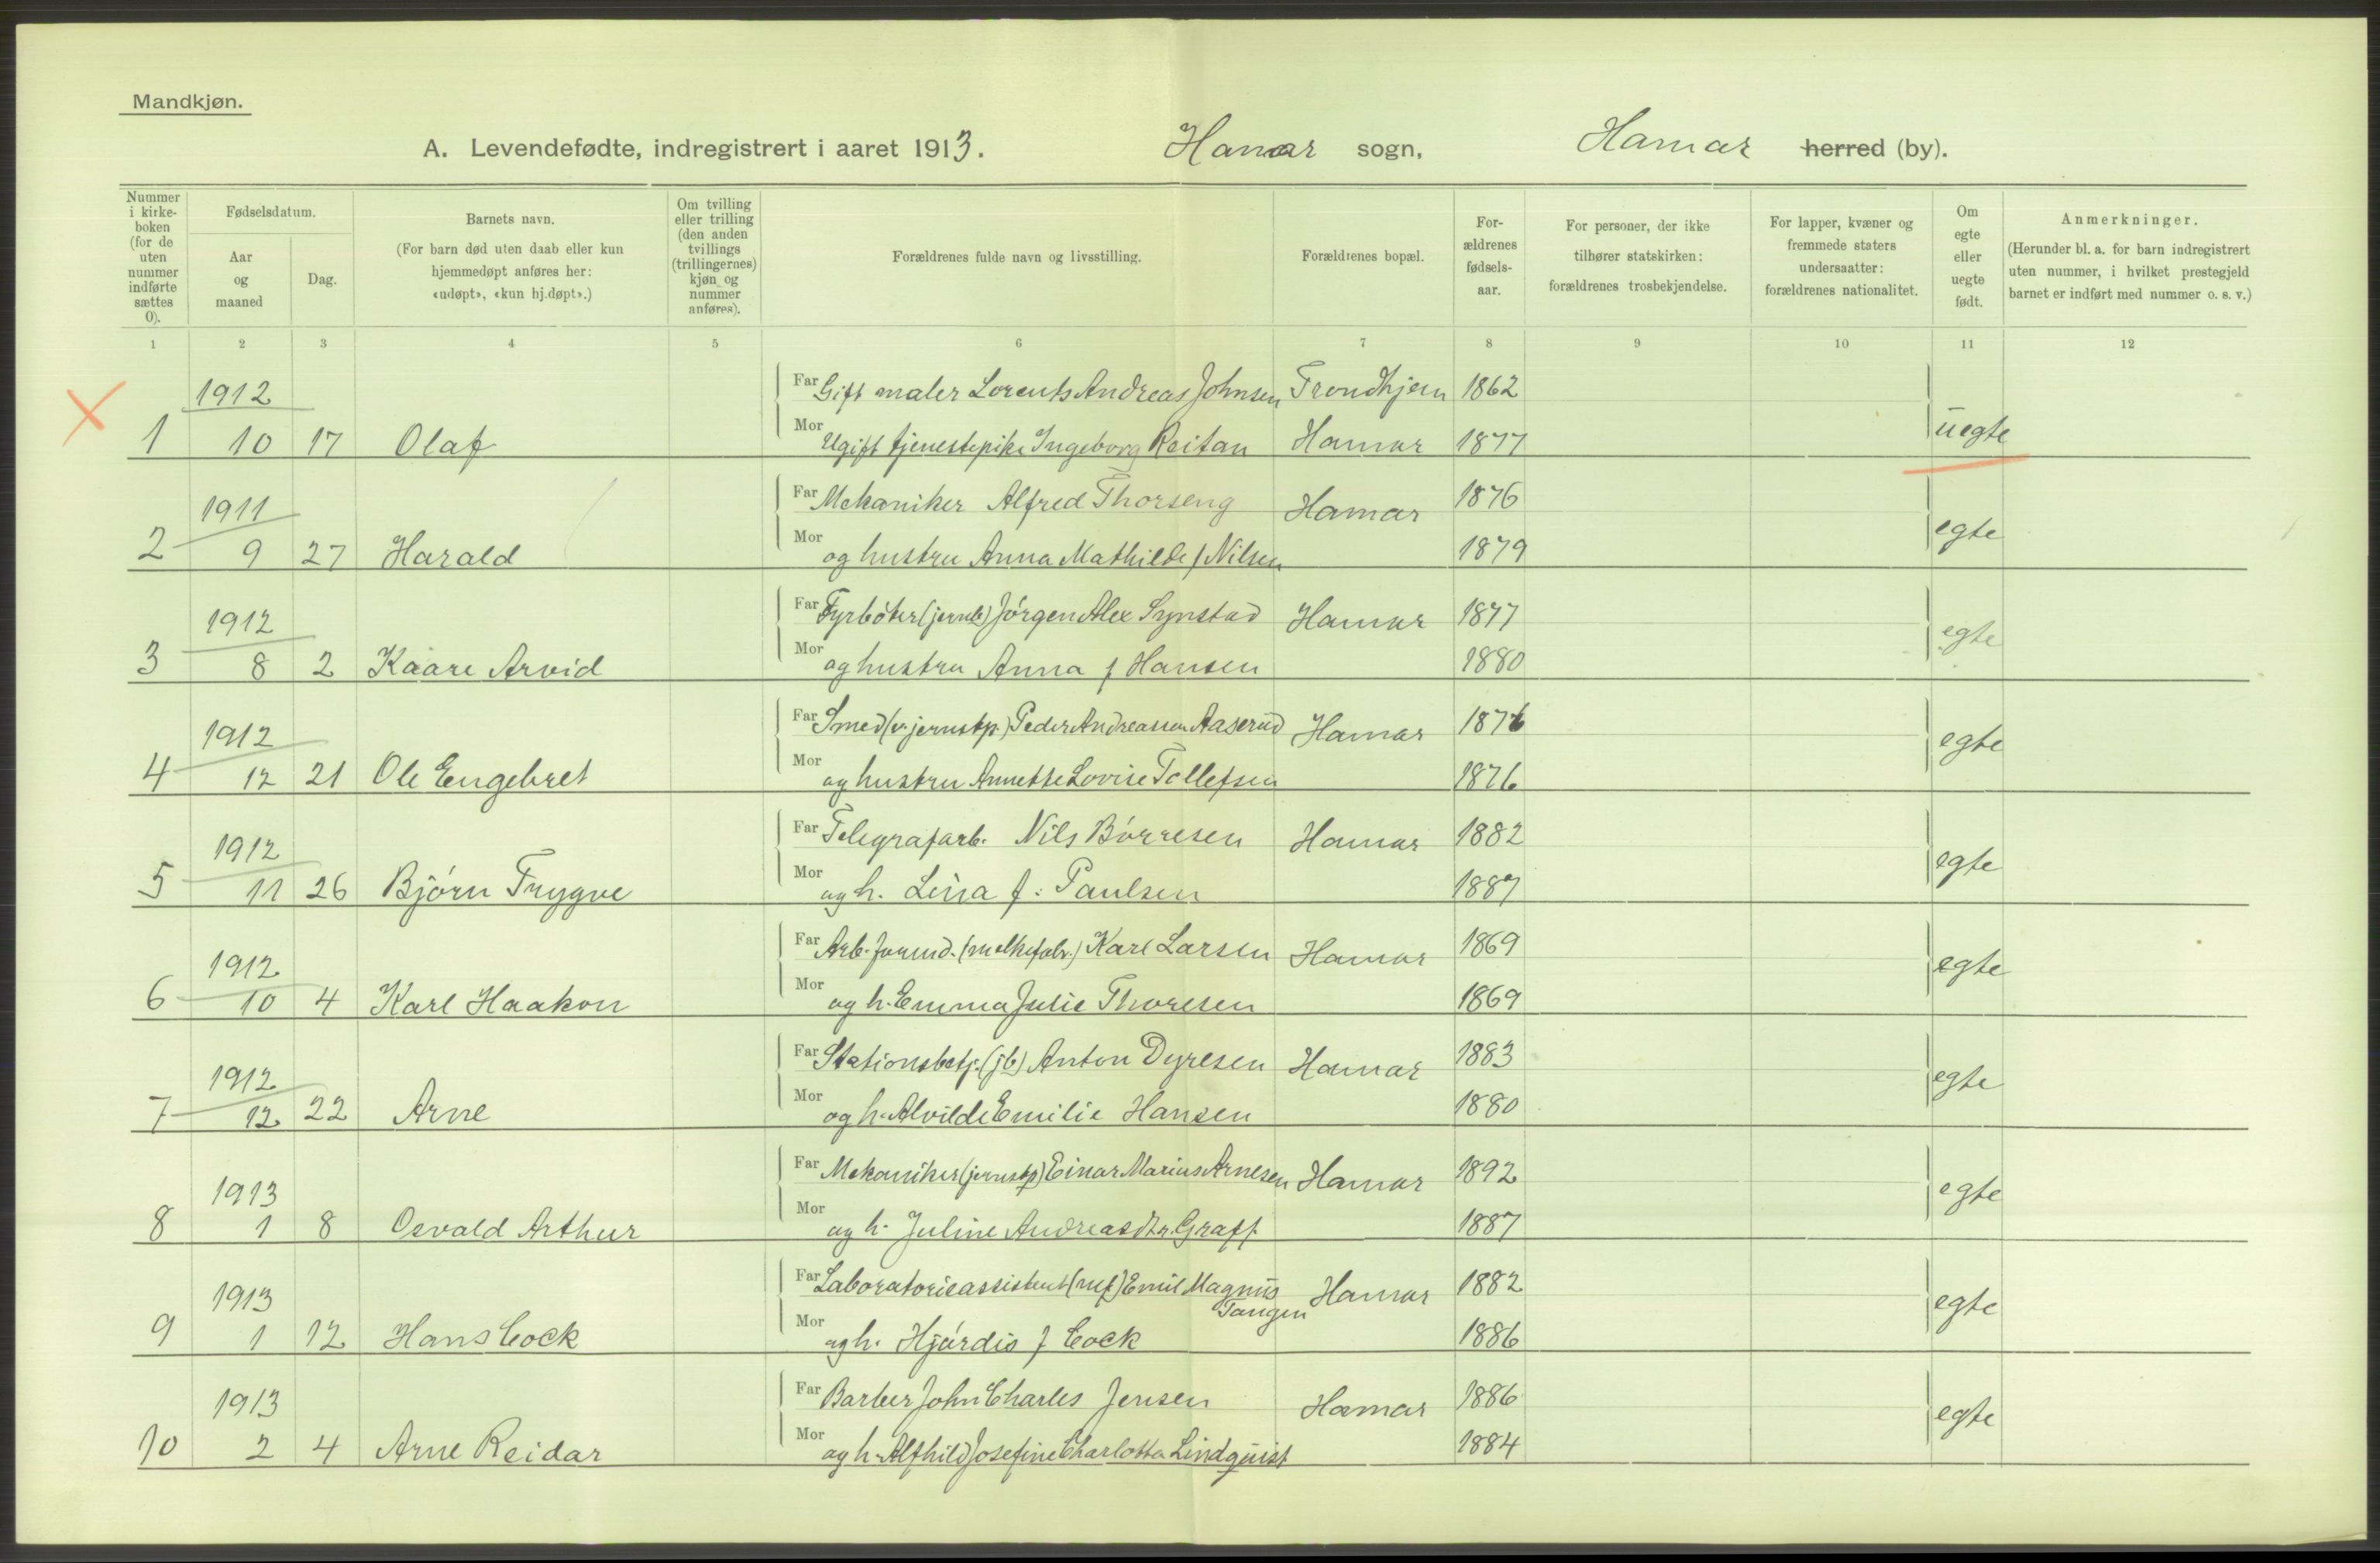 Mandkjøn.
A. Levendefødte, indregistrert i aaret 1913. Hamar sogn, Hamar herred (by).
Nummer i kirkeboken (for de uten nummer indførte sættes 0).
Fødselsdatum.
Aar og maaned
Dag.
Barnets navn.
(For barn død uten daab eller kun hjemmedøpt anføres her: «udøpt», «kun hj.døpt».)
Om tvilling eller trilling (den anden tvillings (trillingernes) kjøn og nummer anføres).
Forældrenes fulde navn og livsstilling.
Forældrenes bopæl.
Forældrenes fødselsaar.
For personer, der ikke tilhører statskirken: forældrenes trosbekjendelse.
For lapper, kvæner og fremmede staters undersaatter: forældrenes nationalitet.
Om egte eller uegte født.
Anmerkninger.
(Herunder bl. a. for barn indregistrert uten nummer, i hvilket prestegjeld barnet er indført med nummer o. s. v.)
1 2 3 4 5 6 7 8 9 10 11 12
1912 Far Gift maler Lorents Andreas Johnsen Trondhjem 1862
1 10 17 Olaf Mor Ugift tjenestepike Ingeborg Reitan Hamar 1877 uegte
1911 Far Mekaniker Alfred Thorseng Hamar 1876
2 9 27 Harald Mor og hustru Anna Mathilde f Nilsen 1879 egte
1912 Far Fyrbøter (jernb) Jørgen Alex Synstad Hamar 1877
3 8 2 Kaare Arvid Mor og hustru Anna f Hansen 1880 egte
1912 Far Smed (v. jernstøp.) Peder Andreassen Aaserud Hamar 1876
4 12 21 Ole Engebret Mor og hustru Annette Lovise Tollefsen 1876 egte
1912 Far Telegrafarb. Nils Børresen Hamar 1882
5 11 26 Bjørn Trygve Mor og h. Lina f. Paulsen 1887 egte
1912 Far Arb. formd. (melkefabr.) Karl Larsen Hamar 1869
6 10 4 Karl Haakon Mor og h. Emma Julie Thoresen 1869 egte
1912 Far Stationsbetj. (jb) Anton Dyresen Hamar 1883
7 12 22 Arne Mor og h. Alvilde Emilie Hansen 1880 egte
1913 Far Mekaniker (jernstøp) Einar Marius Arnesen Hamar 1892
8 1 8 Osvald Arthur Mor og h. Juline Andreasdtr. Graff 1887 egte
1913 Far Laboratorieassistent (mf) Emil Magnus Tangen Hamar 1882
9 1 12 Hans Cock Mor og h. Hjørdis f Cock 1886 egte
1913 Far Barber John Charles Jensen Hamar 1886
10 2 4 Arne Reidar Mor og h. Alfhild Josefine Charlotta Lindquist 1884 egte